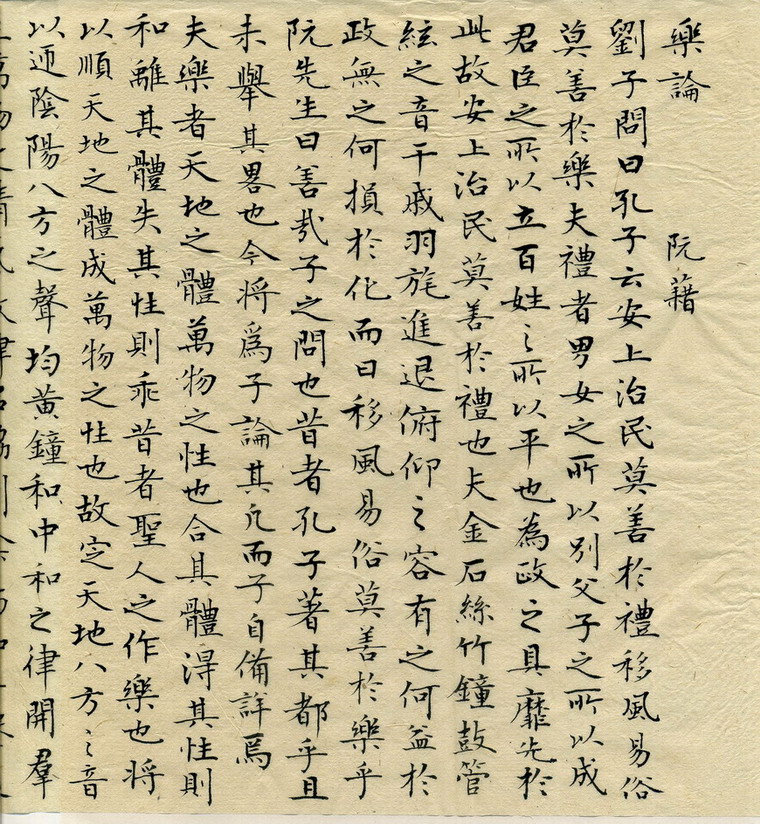 樂論 阮藉
劉子問曰孔子云安上治民莫善於禮移風易俗
莫善於樂夫禮者男女之所以別父子之所以成
君臣之所以立百姓之所以平也為政之具靡先於
此故安上治民莫善於禮也夫金石絲竹鐘鼓管
絃之音干戚羽旄進退俯仰之容有之何益於
政無之何損於化而曰移風易俗莫善於樂乎
阮先生曰善哉子之問也昔者孔子著其都乎且
未舉其畧也今將爲子論其凡而子自備詳焉
夫樂者天地之體萬物之性也合其體得其性則
和離其體失其性則乖昔者聖人之作樂也將
以順天地之體成萬物之性也故定天地八方之音
以迎陰陽八方之聲均黃鐘和中和之律開羣